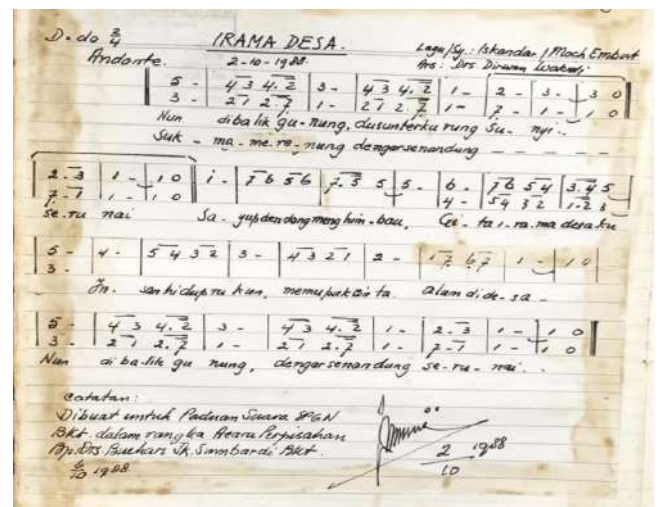 D = do 3/4 IRAMA DESA. Lagu/Sy: Iskandar / Moch Embut
Andante. 2-10-1988. Ars: Drs Dirwan Wakidi
5 - | 4 3 4. 2 | 3 - | 4 3 4. 2 | 1 - | 2 - 3 - | 3 0
3 - | 2 1 2. 7 | 1 - | 2 1 2. 7 | 1 - | 7 - 1 - | 1 0
Nun dibalik gu-nung, dusun terku rung Su-nyi..
Suk - ma-me.re-nung dengar senandung
2. 3 | 1 - | 1 0 | i - | 7 6 5 6 | 7. 5 5 | 5 - | 6 - | 7 6 5 4 | 3. 4 5
7. 1 | 1 - | 1 0 | 4 - | 5 4 3 2 | 1. 2 3
se.ru nai Sa-yup dendang menghim-bau, Ci-ta i-ra.ma desa ku
5 - | 4 - | 5 4 3 2 | 3 - | 4 3 2 1 | 2 - | 1 7 6 7 | 1 - | 1 0
3 -
In. san hidup ru kun, memupuk cin ta alam di de-sa -
5 - | 4 3 4. 2 | 3 - | 4 3 4. 2 | 1 - | 2. 3 | 1 - | 1 0
3 - | 2 1 2. 7 | 1 - | 2 1 2. 7 | 1 - | 7. 1 | 1 - | 1 0
Nun di ba.lik gu nung, dengar senandung se-ru-nai..
catatan:
Dibuat untuk Paduan Suara SPGN
Bkt. dalam rangka Acara Perpisahan
Bp. Drs. Buchari Jk. Simbardi Bkt.
6/10 1988
2/10 1988